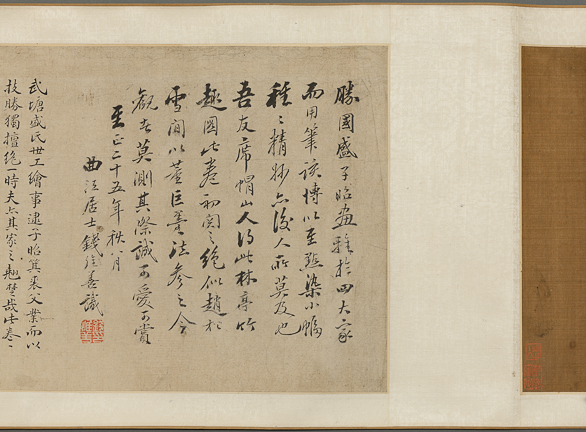 勝國盛子昭畫雜於四大家
而用筆該博以至點染小幅
種種精妙六後人所莫及也
吾友席帽山人得此林亭竹
趣圖此卷初閱之絕似趙松
雪間以董巨筆法參之令
觀者莫測其際誠可愛可賞
至正二十五年秋八月
曲江居士錢惟善識
武塘盛氏世工繪事逮子昭箕裘父業而以
技勝獨擅絕一時夫六其家之趐楚哉此卷